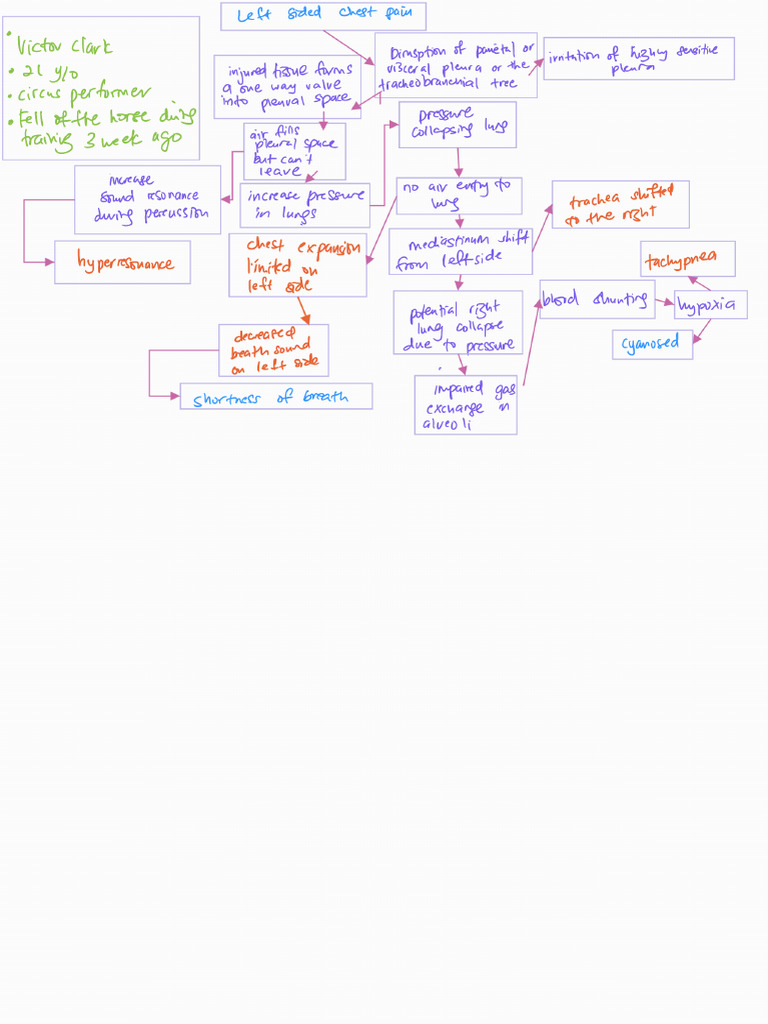 Left sided chest pain
• Victor Clark
• 21 y/o
• circus performer
• Fell of the horse during
training 3 week ago
Disruption of parietal or
visceral pleura or the
tracheobranchial tree
irritation of highly sensitive
pleura
injured tissue forms
a one way valve
into pleural space
pressure
collapsing lung
air fills
pleural space
but can't
leave
increase
sound resonance
during percussion
increase pressure
in lungs
no air entry to
lung
trachea shifted
to the right
hyperresonance
chest expansion
limited on
left side
mediastinum shift
from left side
tachypnea
potential right
lung collapse
due to pressure
blood shunting
hypoxia
decreased
breath sound
on left side
cyanosed
shortness of breath
impaired gas
exchange in
alveoli